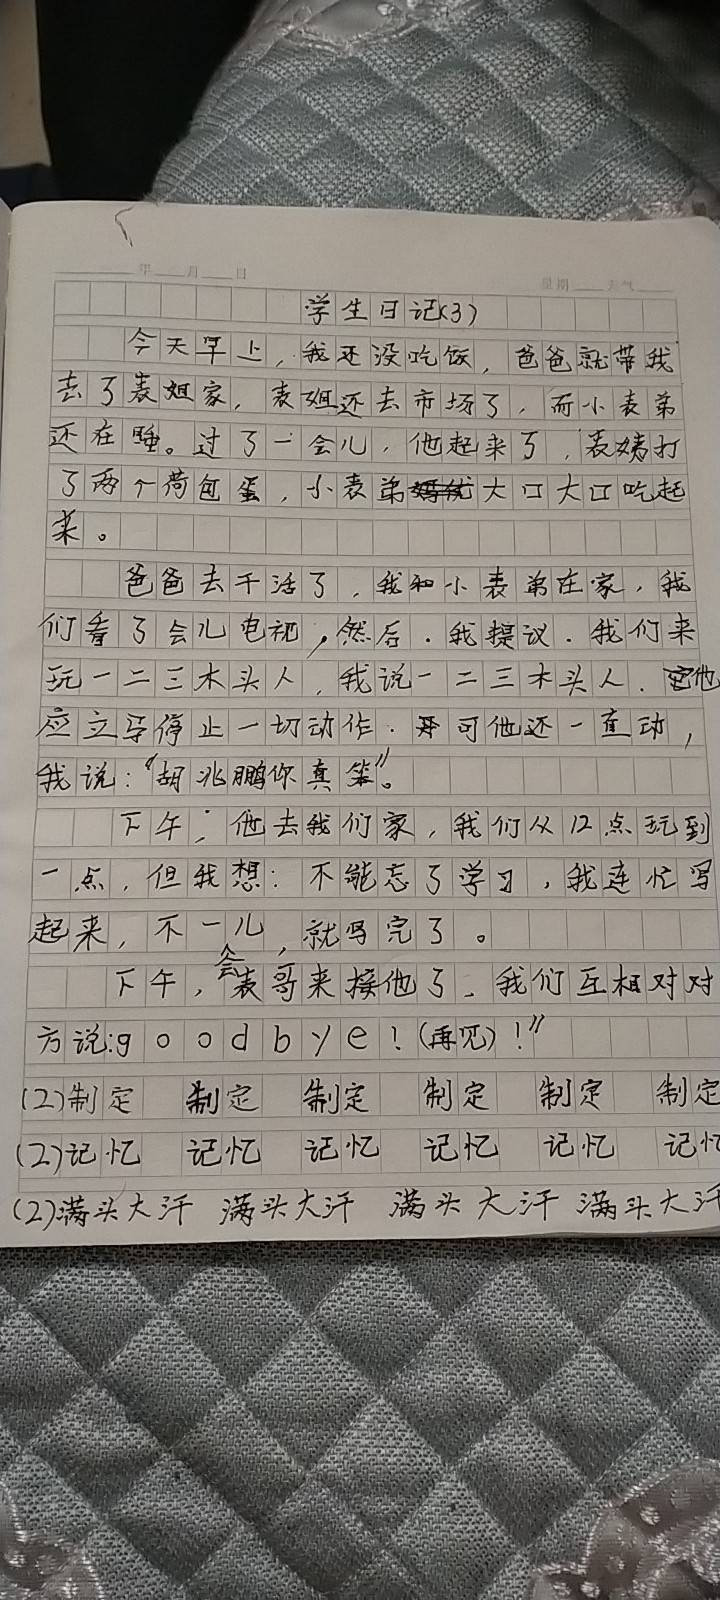 年 月 日 星期 天气
学生日记(3)
今天早上,我还没吃饭,爸爸就带我
去了表姐家,表姐还去市场了,而小表弟
还在睡。过了一会儿,他起来了,表姨打
了两个荷包蛋,小表弟大口大口吃起
来。
爸爸去干活了,我和小表弟在家,我
们看了会儿电视,然后.我提议.我们来
玩一二三木头人,我说一二三木头人.他
应立马停止一切动作.可他还一直动,
我说:“胡兆鹏你真笨”。
下午,他去我们家,我们从12点玩到
一点,但我想:不能忘了学习,我连忙写
起来,不一会儿,就写完了。
下午,表哥来接他了,我们互相对对
方说:goodbye!(再见)!”
(2)制定 制定 制定 制定 制定 制定
(2)记忆 记忆 记忆 记忆 记忆 记忆
(2)满头大汗 满头大汗 满头大汗 满头大汗